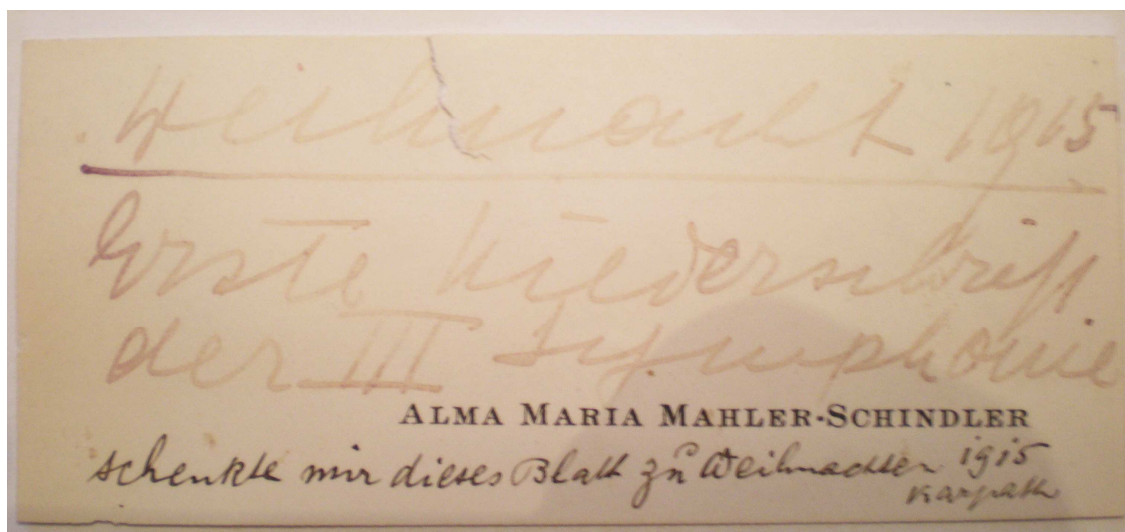 Weihnacht 1915
Erste Niederschrift
der III Symphonie
ALMA MARIA MAHLER-SCHINDLER
schenkte mir dieses Blatt zu Weihnachten 1915
Karpath